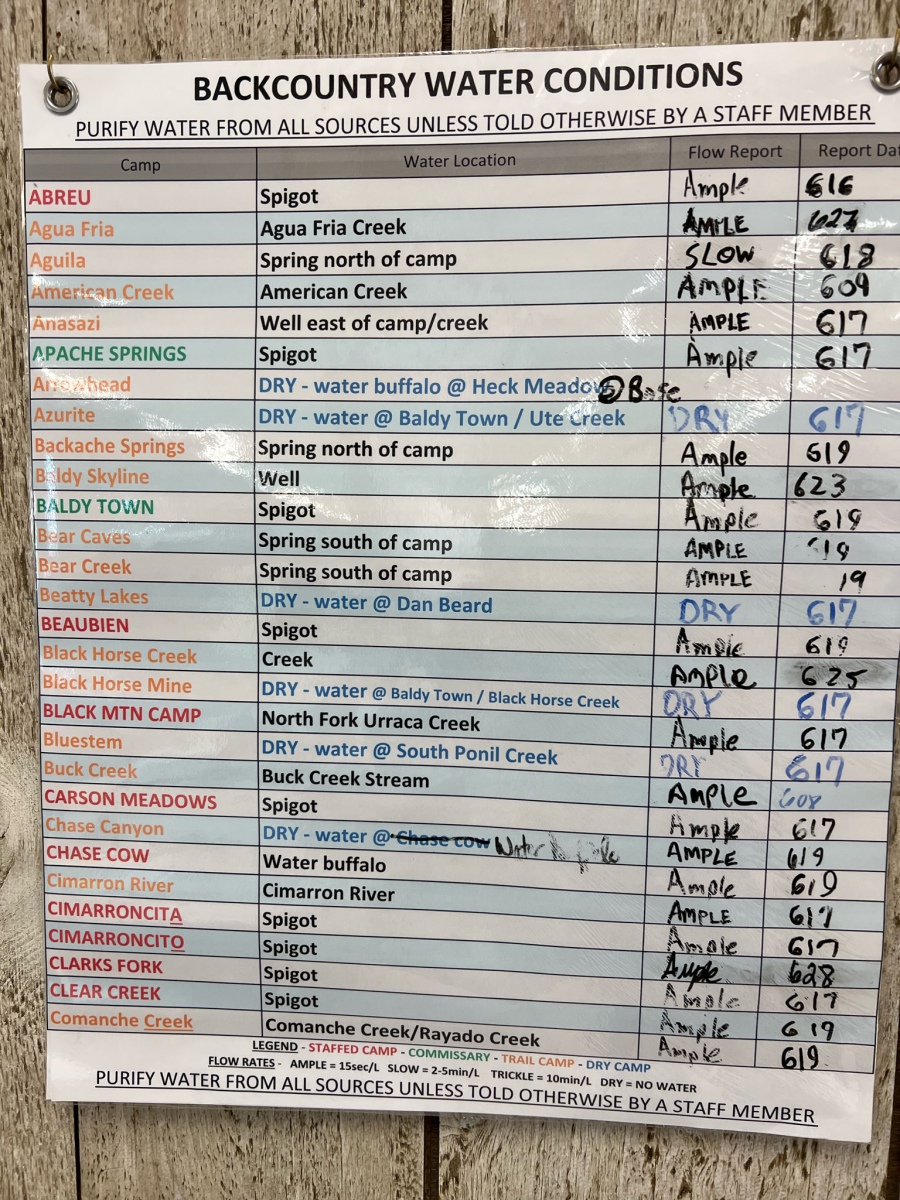 BACKCOUNTRY WATER CONDITIONS
PURIFY WATER FROM ALL SOURCES UNLESS TOLD OTHERWISE BY A STAFF MEMBER
Camp Water Location Flow Report Report Dat
ABREU Spigot Ample 616
Agua Fria Agua Fria Creek AMPLE 627
Aguila Spring north of camp SLOW 618
American Creek American Creek AMPLE 609
Anasazi Well east of camp/creek AMPLE 617
APACHE SPRINGS Spigot Ample 617
Arrowhead DRY - water buffalo @ Heck Meadow @ Base
Azurite DRY - water @ Baldy Town / Ute Creek DRY 617
Backache Springs Spring north of camp Ample 619
Baldy Skyline Well Ample 623
BALDY TOWN Spigot Ample 619
Bear Caves Spring south of camp AMPLE 19
Bear Creek Spring south of camp AMPLE 19
Beatty Lakes DRY - water @ Dan Beard DRY 617
BEAUBIEN Spigot Ample 619
Black Horse Creek Creek AMPLE 625
Black Horse Mine DRY - water @ Baldy Town / Black Horse Creek DRY 617
BLACK MTN CAMP North Fork Urraca Creek Ample 617
Bluestem DRY - water @ South Ponil Creek DRY 617
Buck Creek Buck Creek Stream AMPLE 608
CARSON MEADOWS Spigot Ample 617
Chase Canyon DRY - water @ Chase cow Water AMPLE 619
CHASE COW Water buffalo Ample 619
Cimarron River Cimarron River AMPLE 617
CIMARRONCITA Spigot Ample 617
CIMARRONCITO Spigot Ample 628
CLARKS FORK Spigot Ample 617
CLEAR CREEK Spigot Ample 619
Comanche Creek Comanche Creek/Rayado Creek Ample 619
LEGEND - STAFFED CAMP - COMMISSARY - TRAIL CAMP - DRY CAMP
FLOW RATES - AMPLE = 15sec/L SLOW = 2-5min/L TRICKLE = 10min/L DRY = NO WATER
PURIFY WATER FROM ALL SOURCES UNLESS TOLD OTHERWISE BY A STAFF MEMBER